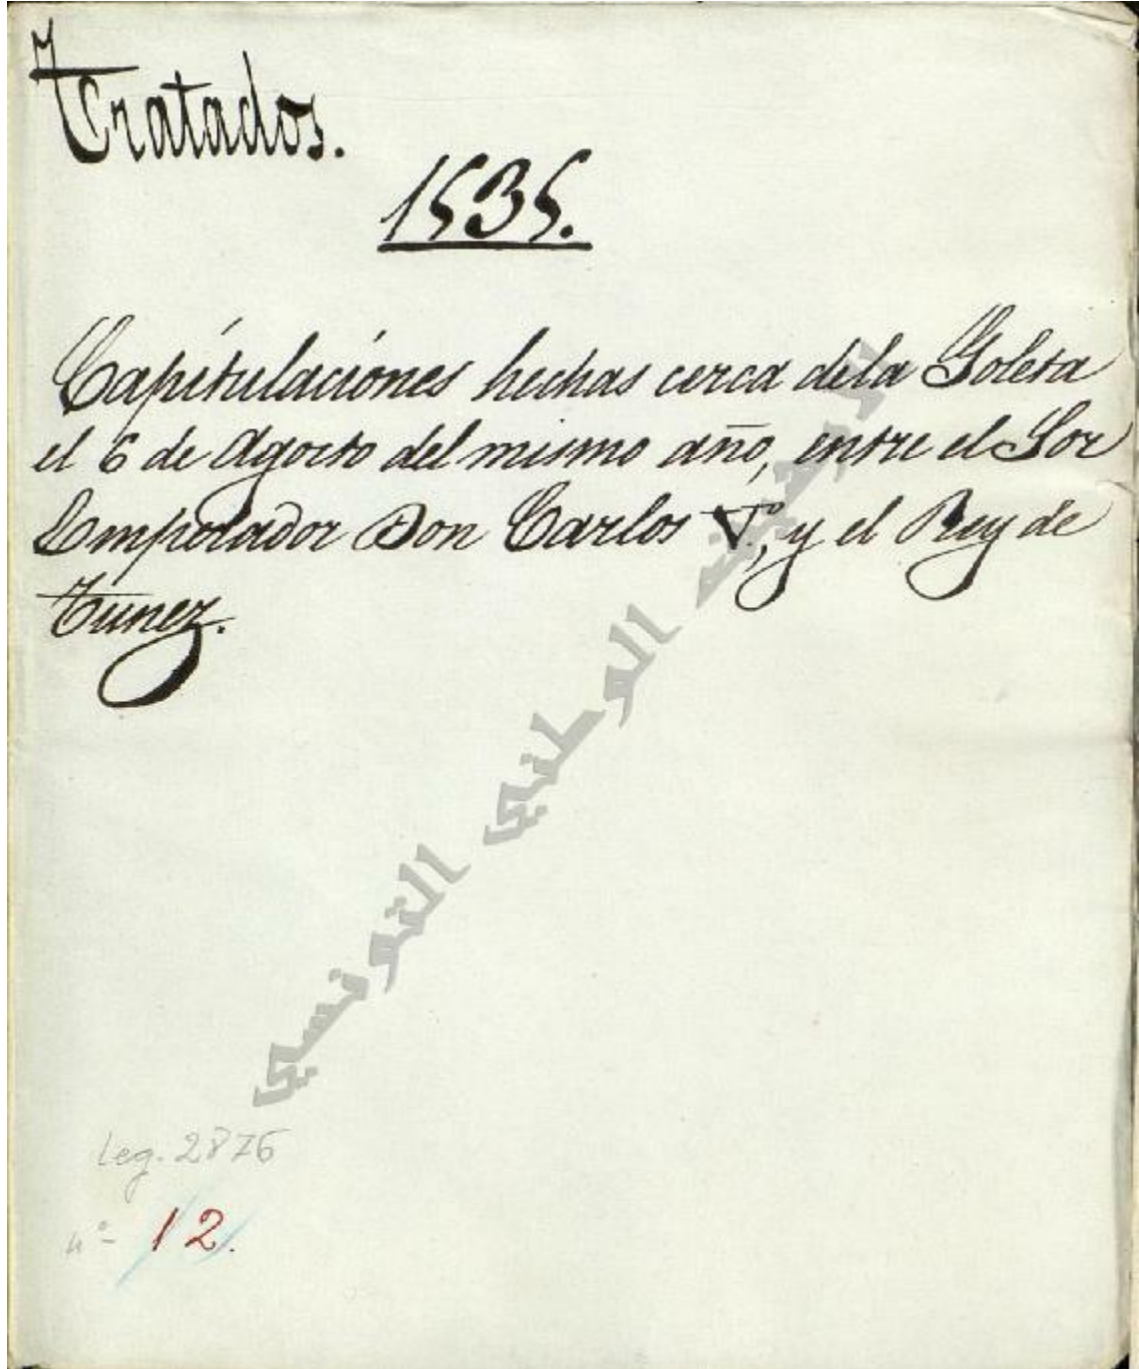 Tratados.
1535.
Capitulaciones hechas cerca dela Goleta
el 6 de Agosto del mismo año, entre el Sor
Emperador Don Carlos Vº, y el Rey de
Túnez.
الأرشيف الوطني التونسي
Leg. 2876
nº 12.